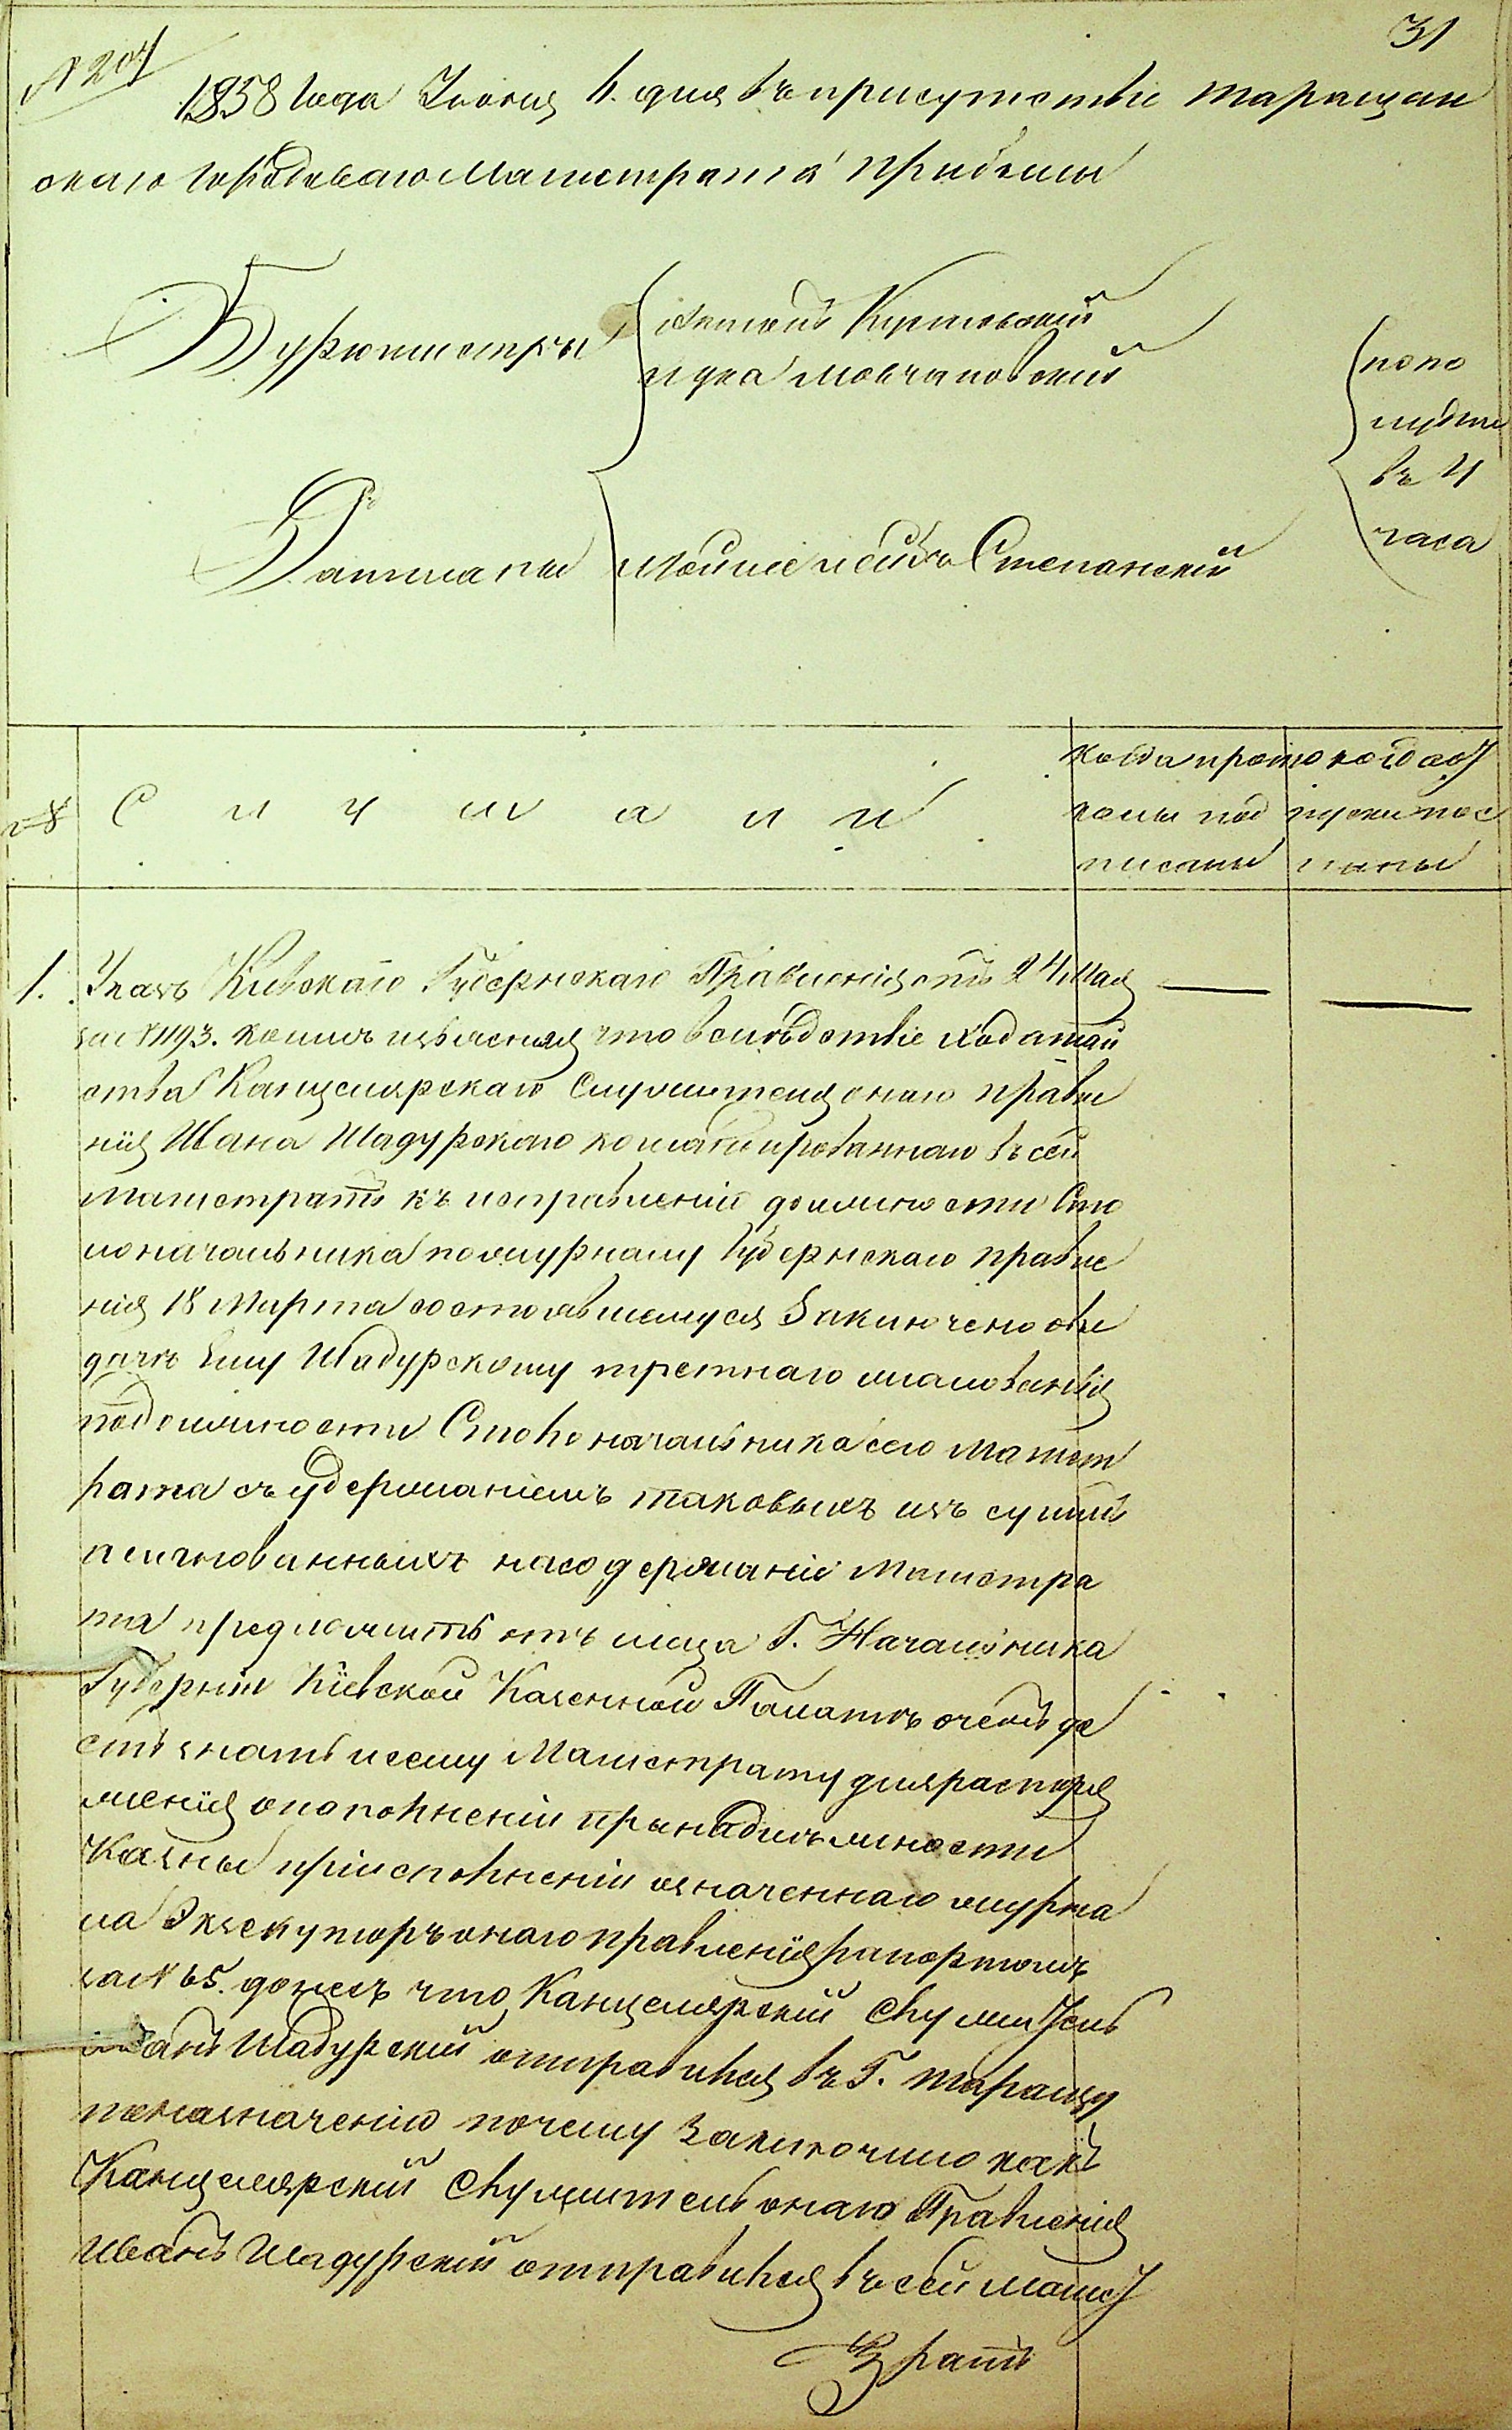 31
№ 204
1858 Года Июня 4. дня въ присутствіе таращан
скаго Городоваго Магистрата прибыли
Бургомистры
Антонъ
Лука Мовчановскій
попо
лудни
въ 4
часа
Ратманы
Степанскій
№
С л у ш а л и
когда прото
колы под
писаны
когда от
пуски пос
ланы
1. Указъ Кіевскаго Губернскаго Правленія отъ 24 Мая
за № 1193. коимъ изъясняя что вслѣдствіе ходатай
ства Канцелярскаго Служителя онаго правле
нія Ивана Шадурскаго командированнаго въ сей
Магистратъ къ исправленію должности Сто
лоначальника по журналу Губернскаго правле
нія 18 Марта состоявшемуся Заключено о вы
дачѣ Ему Шадурскому третнаго жалованья
по должности Столоначальника сего Магист
рата съ удержаніемъ таковыхъ изъ суммъ
ассигнованныхъ на содержаніе Магистра
та предложить отъ лица Г. Начальника
Губерніи Кіевской Казенной Палатѣ о чемъ да
сть знать и сему Магистрату для распоря
женія о пополненіи принадлежности
Казны при исполненіи означеннаго журна
ла Экзекуторъ онаго правленія рапортомъ
за № 65. донесъ что Канцелярскій Служитель
Иванъ Шадурскій отправился въ Г. Таращу
по назначенію почему Заключило какъ
Канцелярскій Служитель онаго Правленія
Иванъ Шадурскій отправился въ сей Магист
ратъ